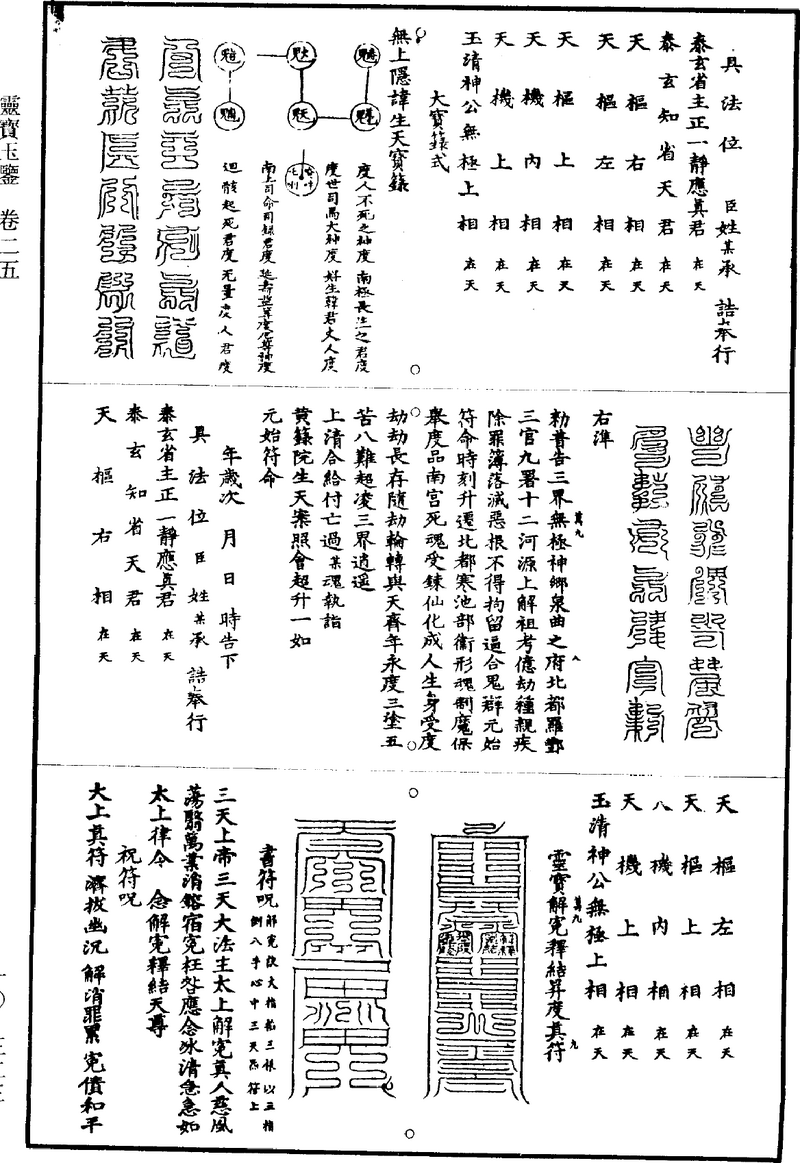 靈寶玉鑒 卷二五
具法位 臣姓某承 誥奉行
泰玄省主正一靜應真君 在天
泰玄知省天君 在天
天樞右相 在天
天樞左相 在天
天樞上相 在天
天機內相 在天
天機上相 在天
玉清神公無極上相 在天
大寶籙式
無上隱諱生天寶籙
度人不死之神度 南極長生之君度
度世司馬大神度 好生韓君丈人度
南上司命司錄君度 延壽益算度厄尊神度
迴骸起死君度 无量度人君度
右準
勑普告三界無極神鄉泉曲之府北都羅酆
三官九署十二河源上解祖考億劫種親疾
除罪簿落滅惡根不得拘留逼合鬼群元始
符命時刻升遷北都寒池部衛形魂制魔保
舉度品南宮死魂受鍊仙化成人生身受度
劫劫長存隨劫輪轉與天齊年永度三塗五
苦八難超凌三界逍遥
上清合給付亡過某魂執詣
黄籙院生天案照會超升一如
元始符命
年歲次 月 日 時告下
具法位 臣姓某承 誥奉行
泰玄省主正一靜應真君 在天
泰玄知省天君 在天
天樞右相 在天
天樞左相 在天
天樞上相 在天
八機內相 在天
天機上相 在天
玉清神公無極上相 在天
靈寶解寃釋結昇度真符
書符呪 解寃訣大指掐三根以五指
倒八手心中三天炁符上
三天上帝三天大法主太上解寃真人慈風
蕩翳萬業消鎔宿寃枉咎應念冰清急急如
太上律令 念解寃釋結天尊
祝符呪
大上真符 濟拔幽沉 解消罪累 寃債和平